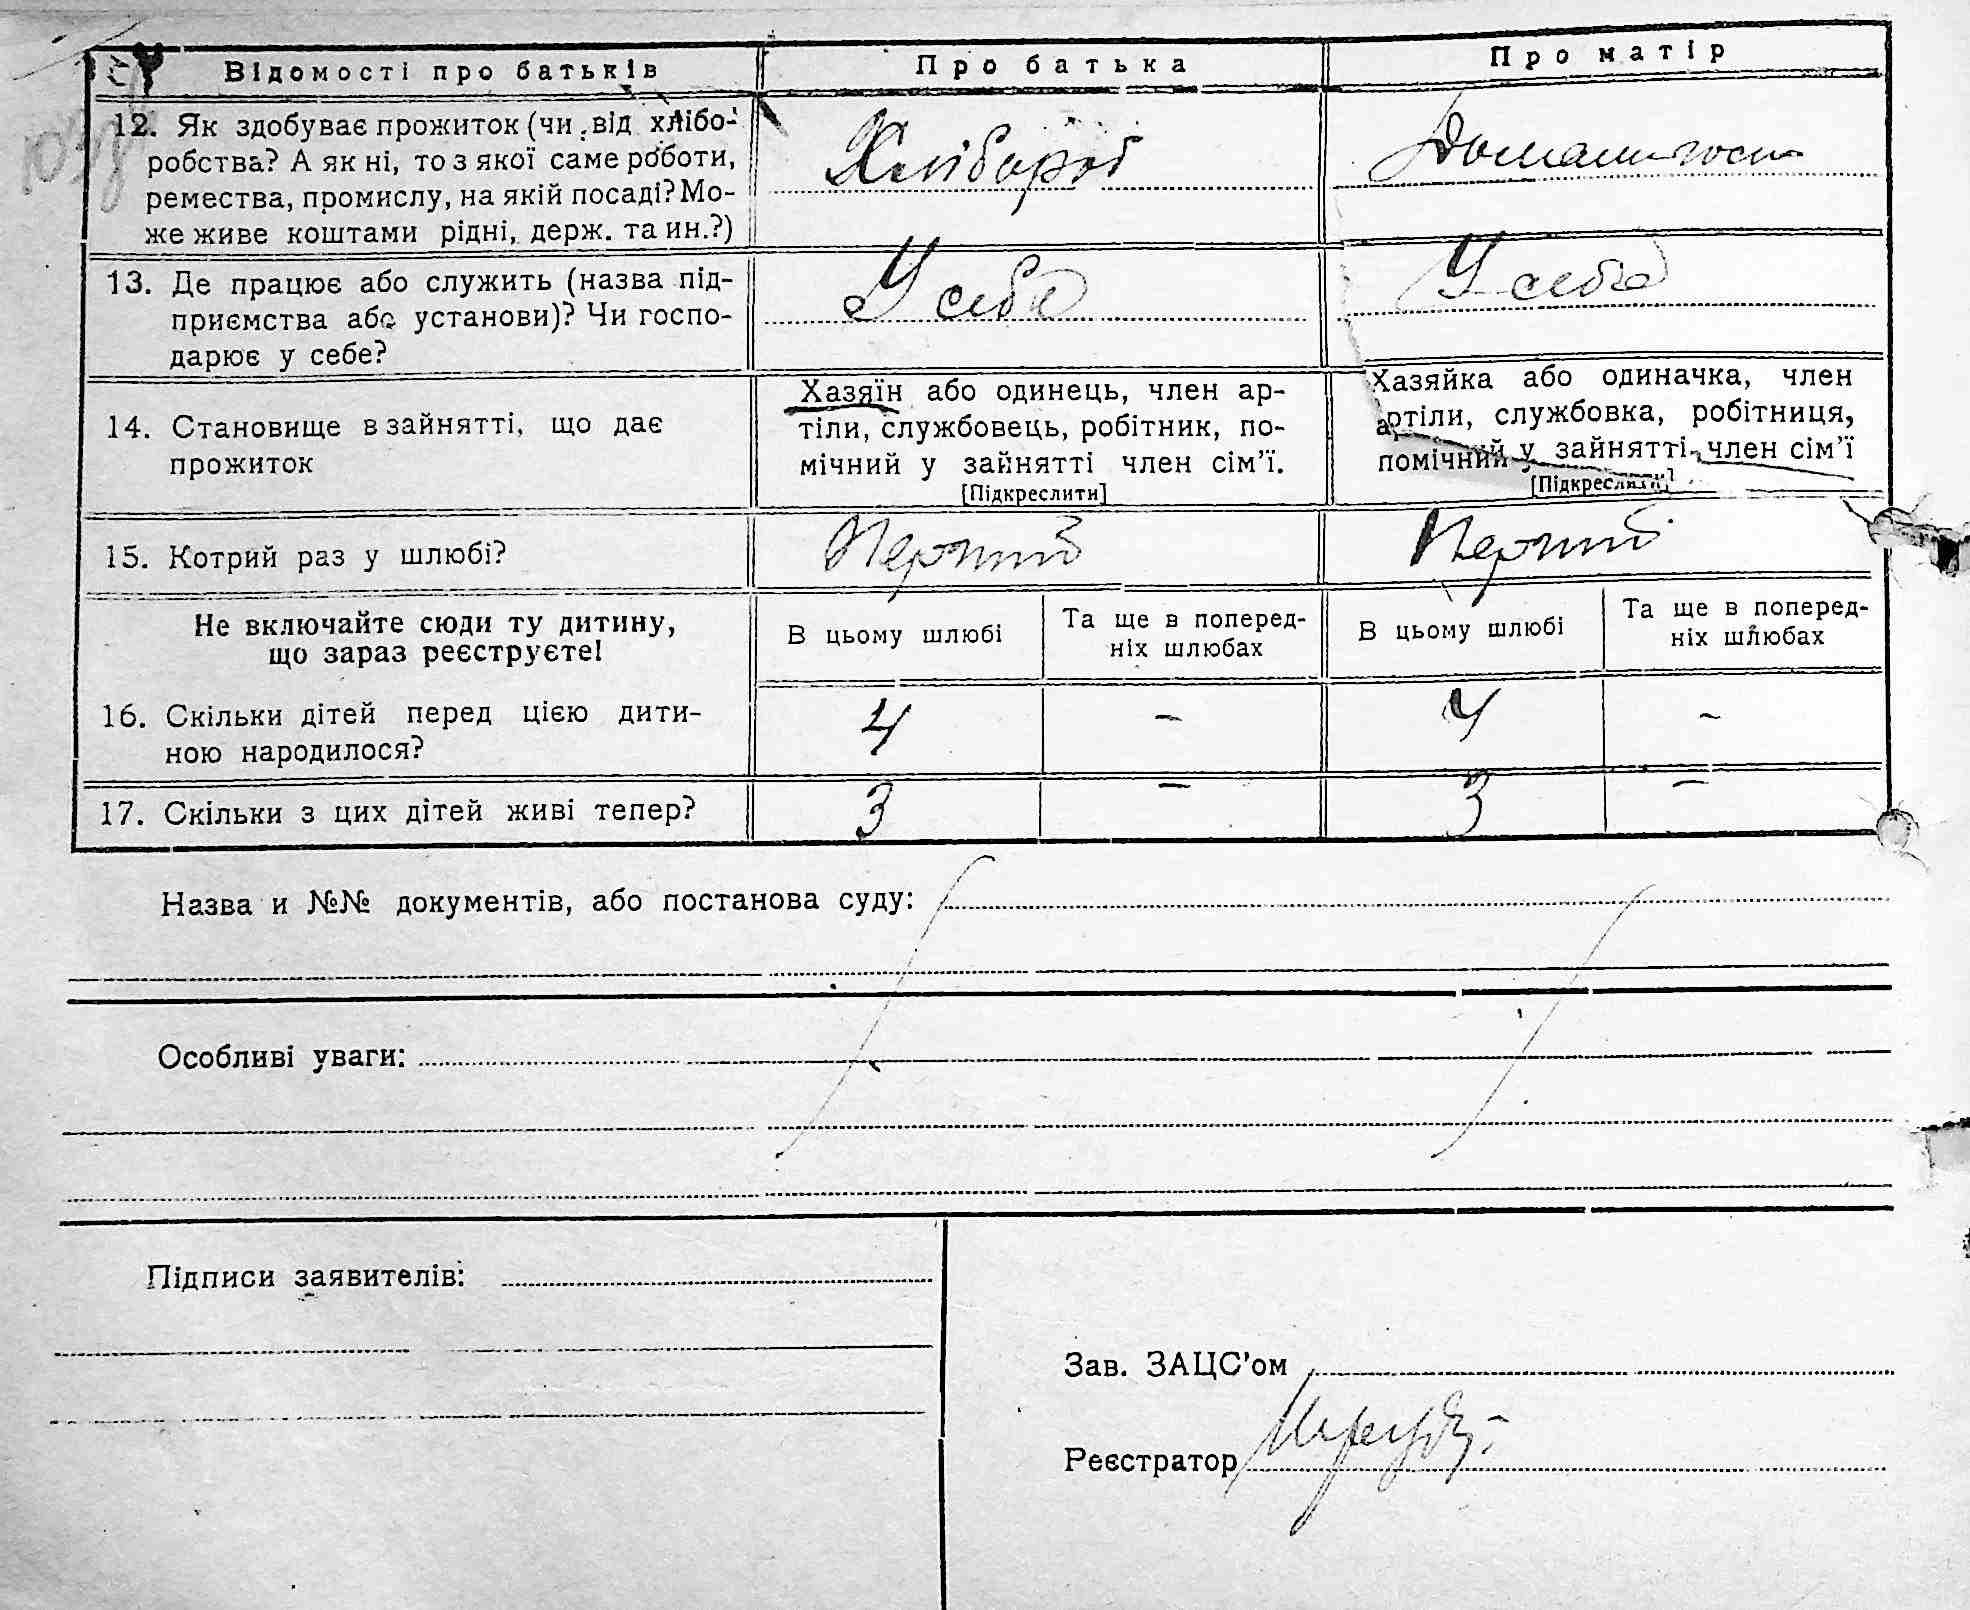 Відомості про батьків Про батька Про матір
12. Як здобуває прожиток (чи від хлібо-
робства? А як ні, то з якої саме роботи,
ремества, промислу, на якій посаді? Мо-
же живе коштами рідні, держ. та ин.?)
Хлібороб
13. Де працює або служить (назва під-
приємства або установи)? Чи госпо-
дарює у себе?
У себе У себе
14. Становище в зайнятті, що дає
прожиток
Хазяїн або одинець, член ар-
тіли, службовець, робітник, по-
мічний у зайнятті член сім'ї.
[Підкреслити]
Хазяйка або одиначка, член
артіли, службовка, робітниця,
помічний у зайнятті член сім'ї
[Підкреслити]
15. Котрий раз у шлюбі? Перший Перший
Не включайте сюди ту дитину,
що зараз реєструєте!
В цьому шлюбі
Та ще в поперед-
ніх шлюбах
В цьому шлюбі
Та ще в поперед-
ніх шлюбах
16. Скільки дітей перед цією дити-
ною народилося?
4 - 4 -
17. Скільки з цих дітей живі тепер? 3 - 3 -
Назва и №№ документів, або постанова суду:
Особливі уваги:
Підписи заявителів:
Зав. ЗАЦС'ом
Реєстратор